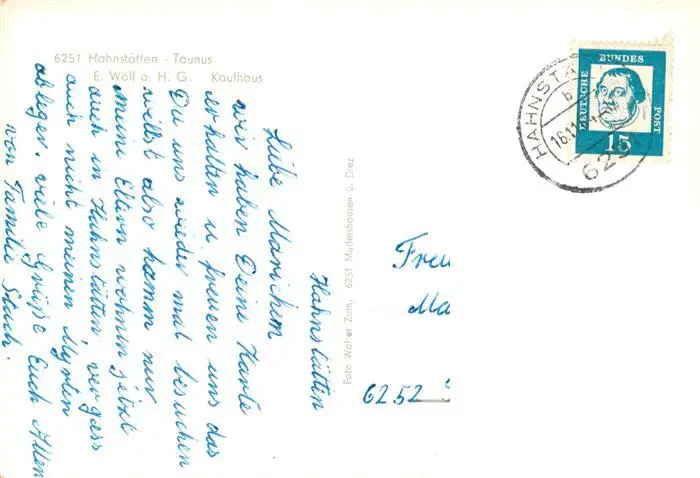 6251 Hahnstätten - Taunus
E. Woll o. H. G. Kaufhaus
Hahnstätten
Liebe Mariechen
wir haben Deine Karte
erhalten u freuen uns das
Du uns wieder mal besuchen
willst also komm nur
meine Eltern wohnen jetzt
auch in Hahnstätten, vergess
auch nicht meinen Myrten
ableger. viele Grüße Euch Allen
von Familie Stach.
Foto Walter Zorn, 6251 Mudershausen ü. Diez
DEUTSCHE
BUNDES
POST
15
HAHNSTÄ
b
16.11
625
Frau
Ma
6252